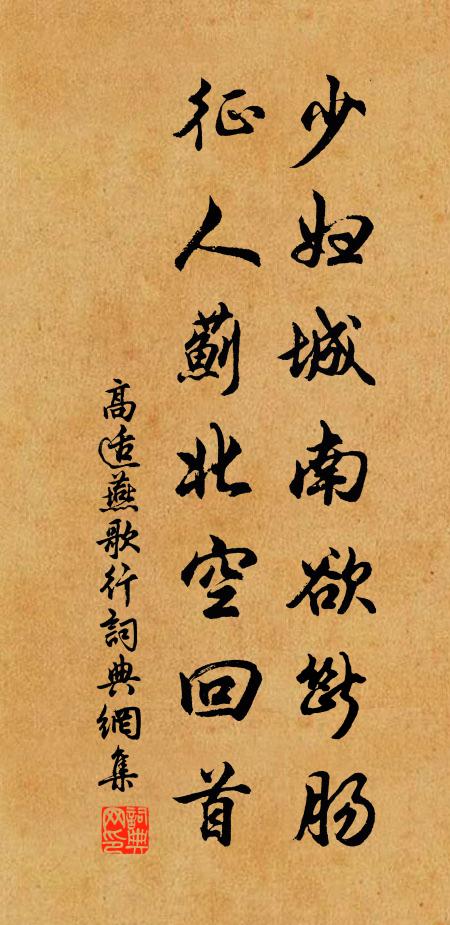 少妇城南欲断肠
征人蓟北空回首
高适燕歌行词典網集
詞典網印